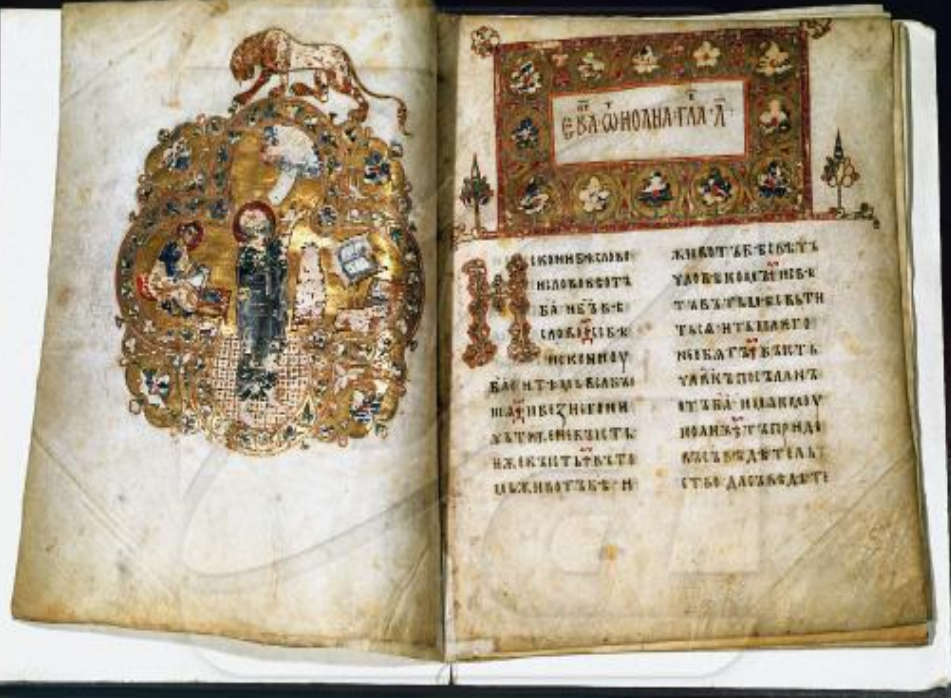 ЕВА · Ѡ ИОАНА · ГЛА · А҃ ·
ИСКОНИ БѢ СЛОВО
И СЛОВО БѢ ОТЪ
Б҃А · И Б҃Ъ БѢ
СЛОВО · СЕ БѢ
ИСКОНИ ОУ
Б҃А · И ТѢМЬ ВЬСА БꙐ
ШѦ · И БЕЗ НЕГО НИ
ЧЬТОЖЕ НЕ БꙐСТЬ
ѤЖЕ БꙐСТЬ · ВЪ ТО
МЬ ЖИВОТЪ БѢ · И
ЖИВОТЪ БѢ СВѢТЪ
ЧЛОВѢКОМЪ · И СВѢ
ТЪ ВЪ ТЬМѢ СВЬТИ
ТЬСѦ · И ТЬМА ѤГО
НЕ ОБѦТЪ · БꙐСТЬ
ЧЛ҃ВКЪ ПОСЪЛАНЪ
ОТЪ Б҃А · ИМѦ ѤМОУ
ИОАНЪ · ТЪ ПРИДЕ
ВЪ СЪВѢДѢТЕЛЬ
СТВО · ДА СЪВѢДѢТЕ